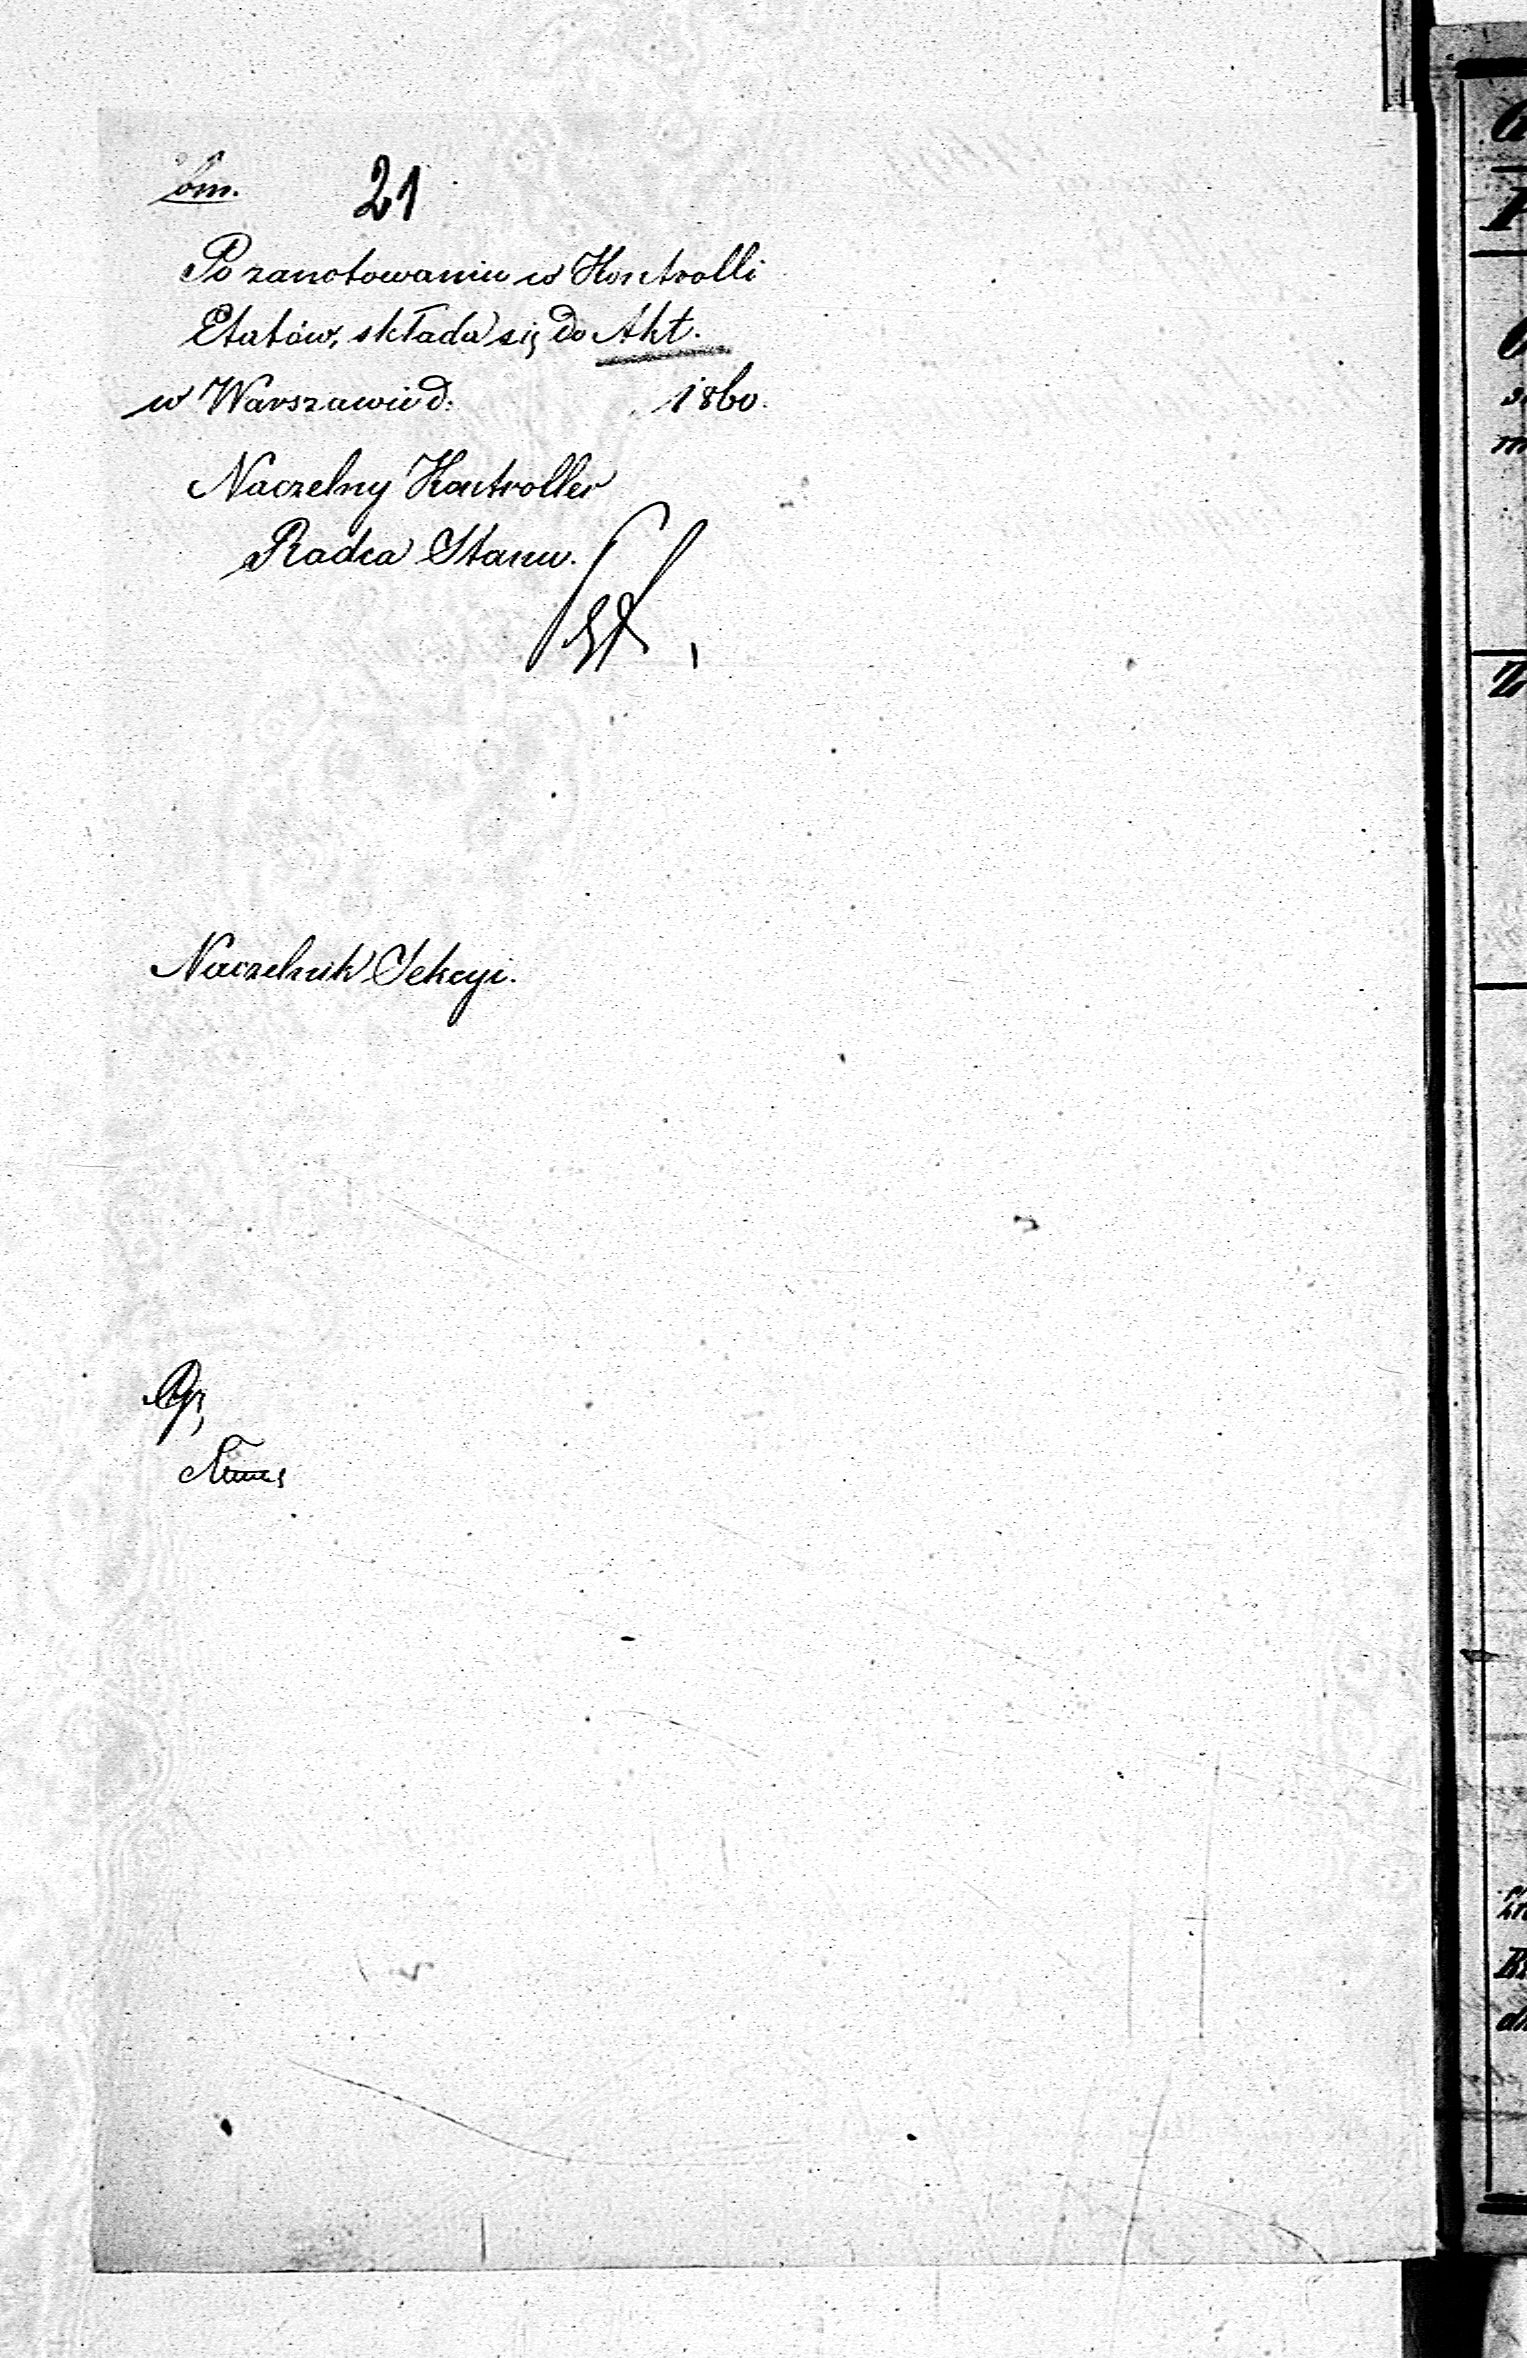 21
Po zanotowaniu w Kontrolli
Etatów, składa się do Akt.
w Warszawie d. 1860.
Naczelny Kontroller
Radca Stanu.
Naczelnik Sekcyi.